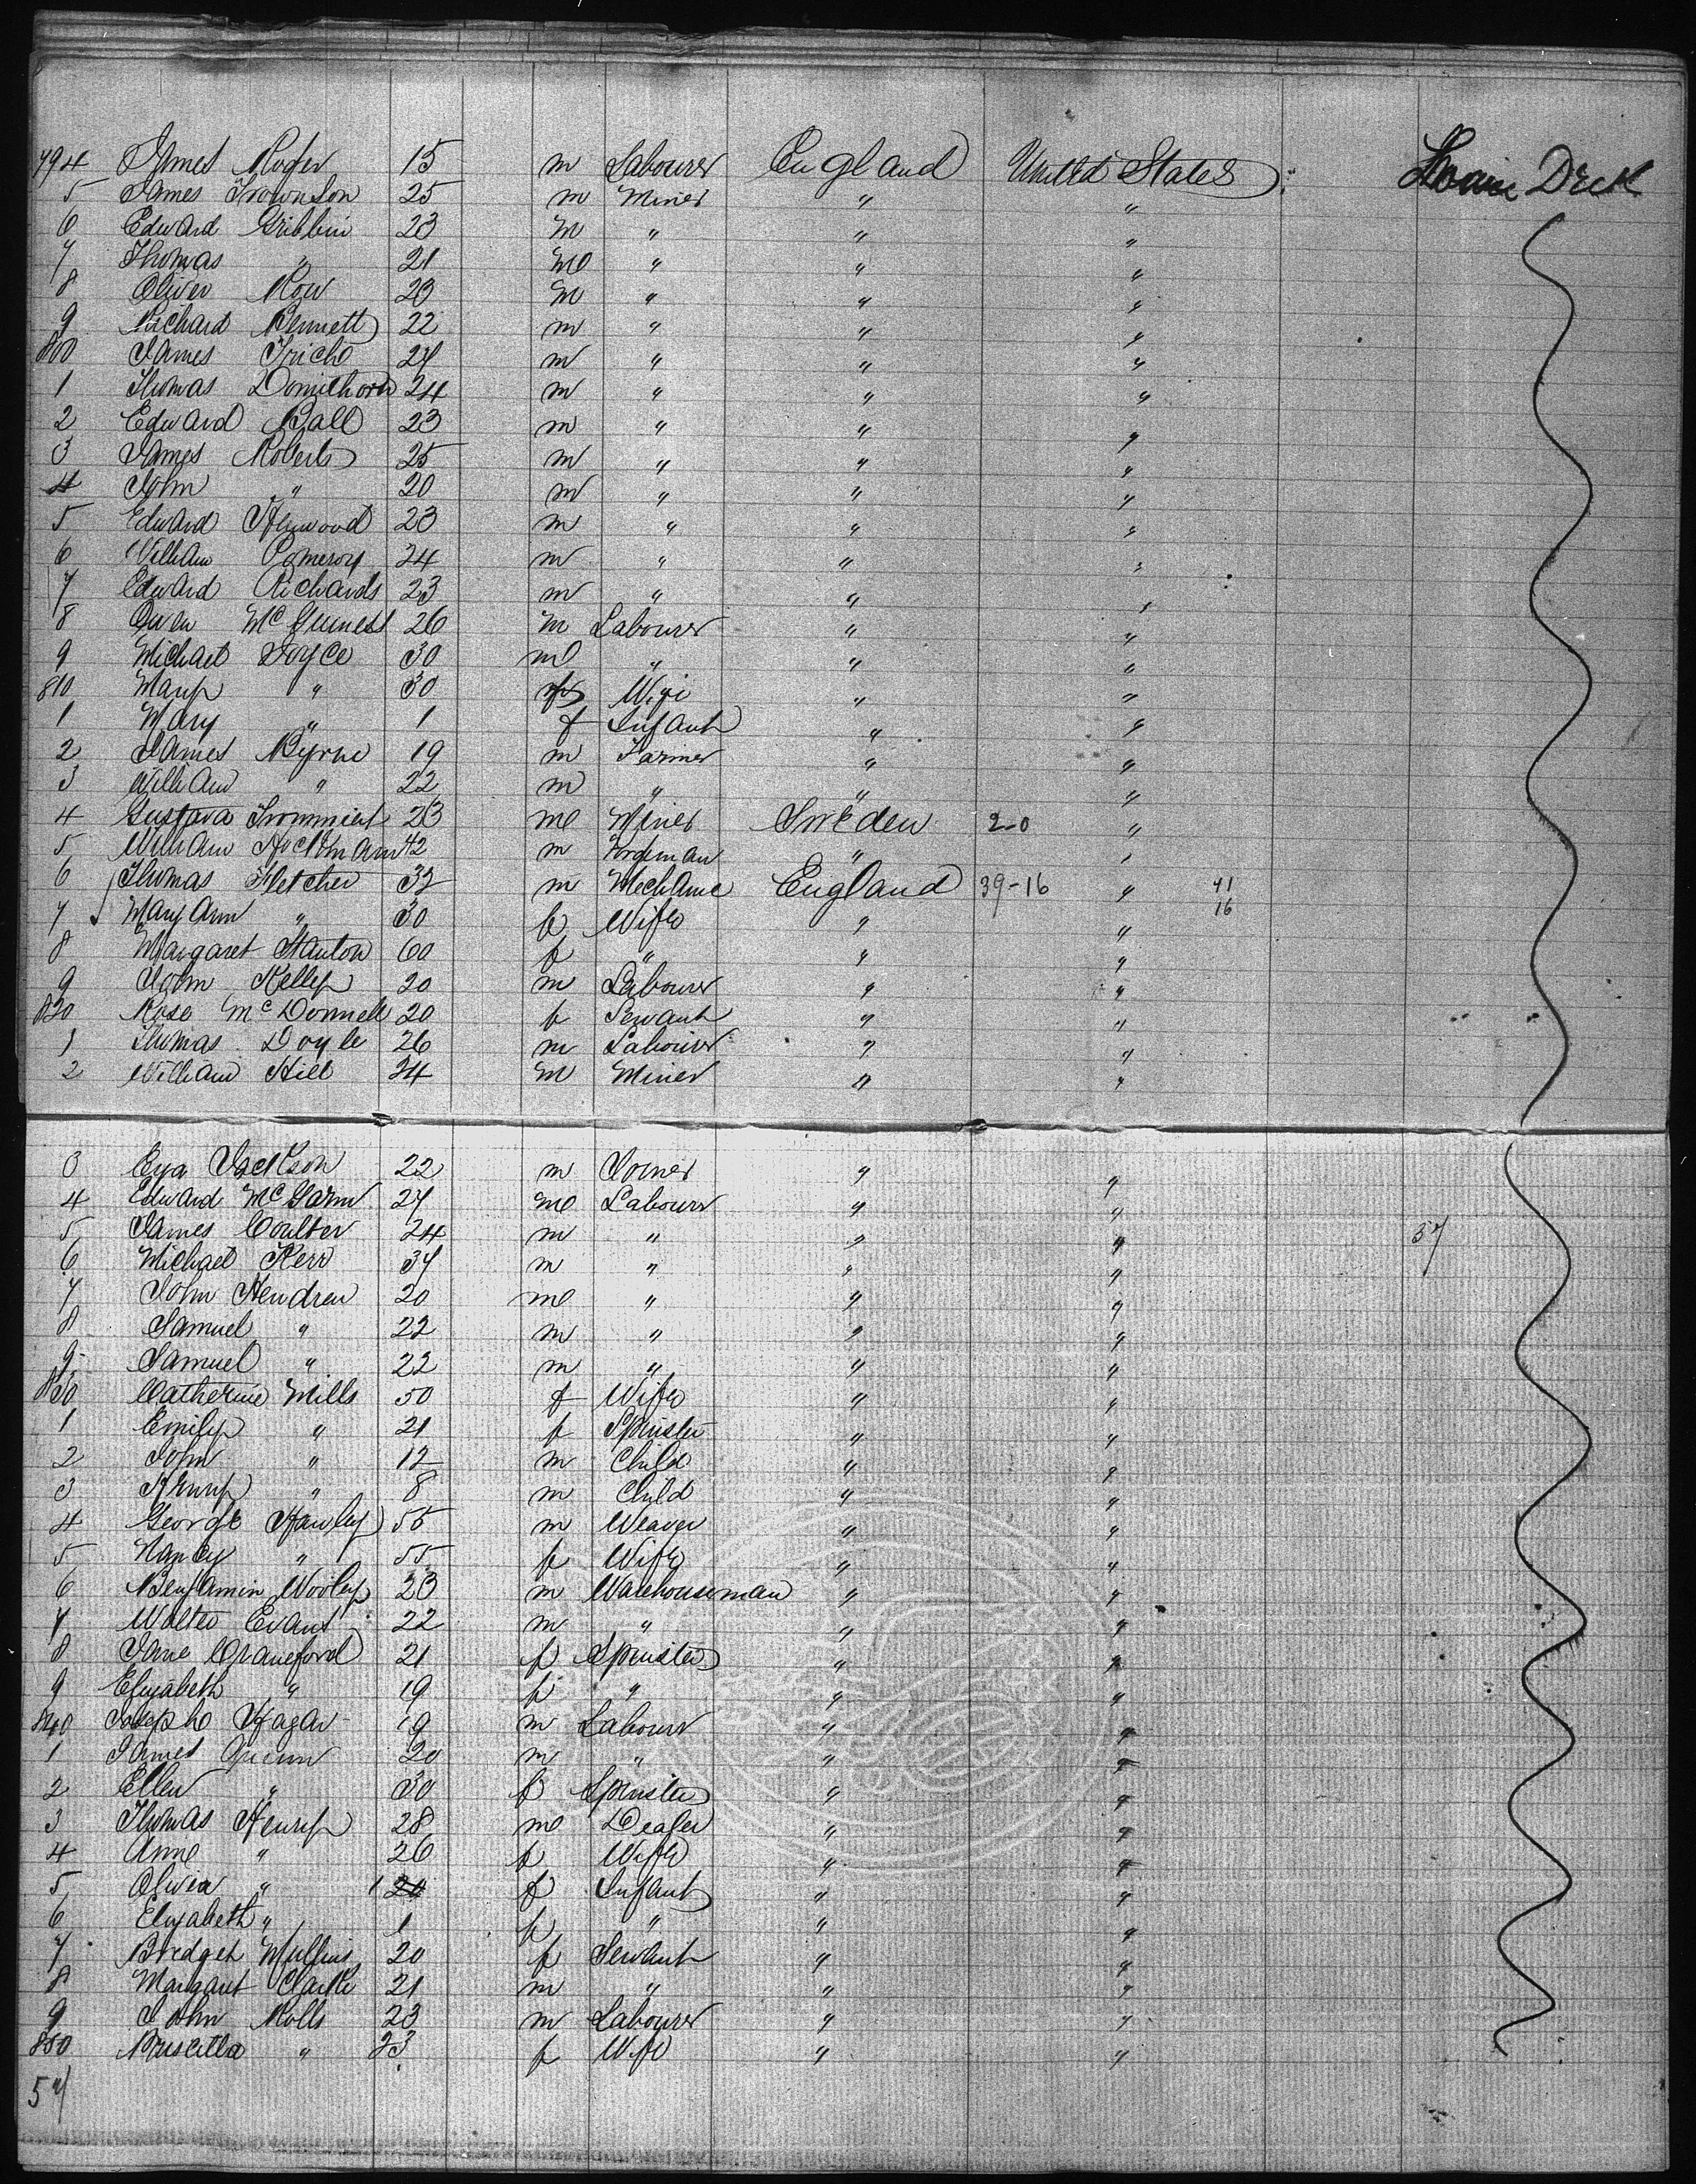 794 James Roger 15 m Labourer England United States Main Deck
5 James Trownson 25 m Miner " "
6 Edward Gribbin 23 m " " "
7 Thomas " 21 m " " "
8 Oliver Row 23 m " " "
9 Richard Bennett 22 m " " "
800 James 24 m " " "
1 Thomas 24 m " " "
2 Edward Ball 23 m " " "
3 James Roberts 25 m " " "
4 John " 20 m " " "
5 Edward Henwood 23 m " " "
6 William Pomeroy 24 m " " "
7 Edward Richards 23 m " " "
8 Owen McGuiness 26 m Labourer " "
9 Michael Joyce 30 m " " "
810 Mary " 30 f Wife " "
1 Mary " 1 f Infant " "
2 James Byrne 19 m Farmer " "
3 William " 22 m " " "
4 Gustava 23 m Miner Sweden 2-0 "
5 William 42 m " "
6 Thomas Fletcher 32 m Mechanic England 39-16 " 41 16
7 Mary Ann " 30 f Wife " "
8 Margaret Stanton 60 f " " "
9 John Kelly 20 m Labourer " "
820 Rose McDonnell 20 f Servant " "
1 Thomas Doyle 26 m Labourer " "
2 William Hill 24 m Miner " "
3 Jackson 22 m Joiner " "
4 Edward 27 m Labourer " "
5 James Coulter 24 m " " " 37
6 Michael Kerr 34 m " " "
7 John Hendren 20 m " " "
8 Samuel " 22 m " " "
9 Samuel " 22 m " " "
830 Catherine Mills 50 f Wife " "
1 Emily " 21 f Spinster " "
2 John " 12 m Child " "
3 Henry " 8 m Child " "
4 George Hawley 55 m Weaver " "
5 Nancy " 55 f Wife " "
6 Benjamin Wooley 23 m Warehouseman " "
7 Walter Evans 22 m " " "
8 Jane Craneford 21 f Spinster " "
9 Elizabeth " 19 f " " "
840 Joseph Hagar 19 m Labourer " "
1 James Quinn 20 m " " "
2 Ellen " 30 f Spinster " "
3 Thomas Henry 28 m Dealer " "
4 Anne " 26 f Wife " "
5 Olivia " 1 f Infant " "
6 Elizabeth " 1 f " " "
7 Bridget Mullins 20 f Servant " "
8 Margaret Clarke 21 m " " "
9 John Rolls 23 m Labourer " "
850 Priscilla " 23 f Wife " "
57